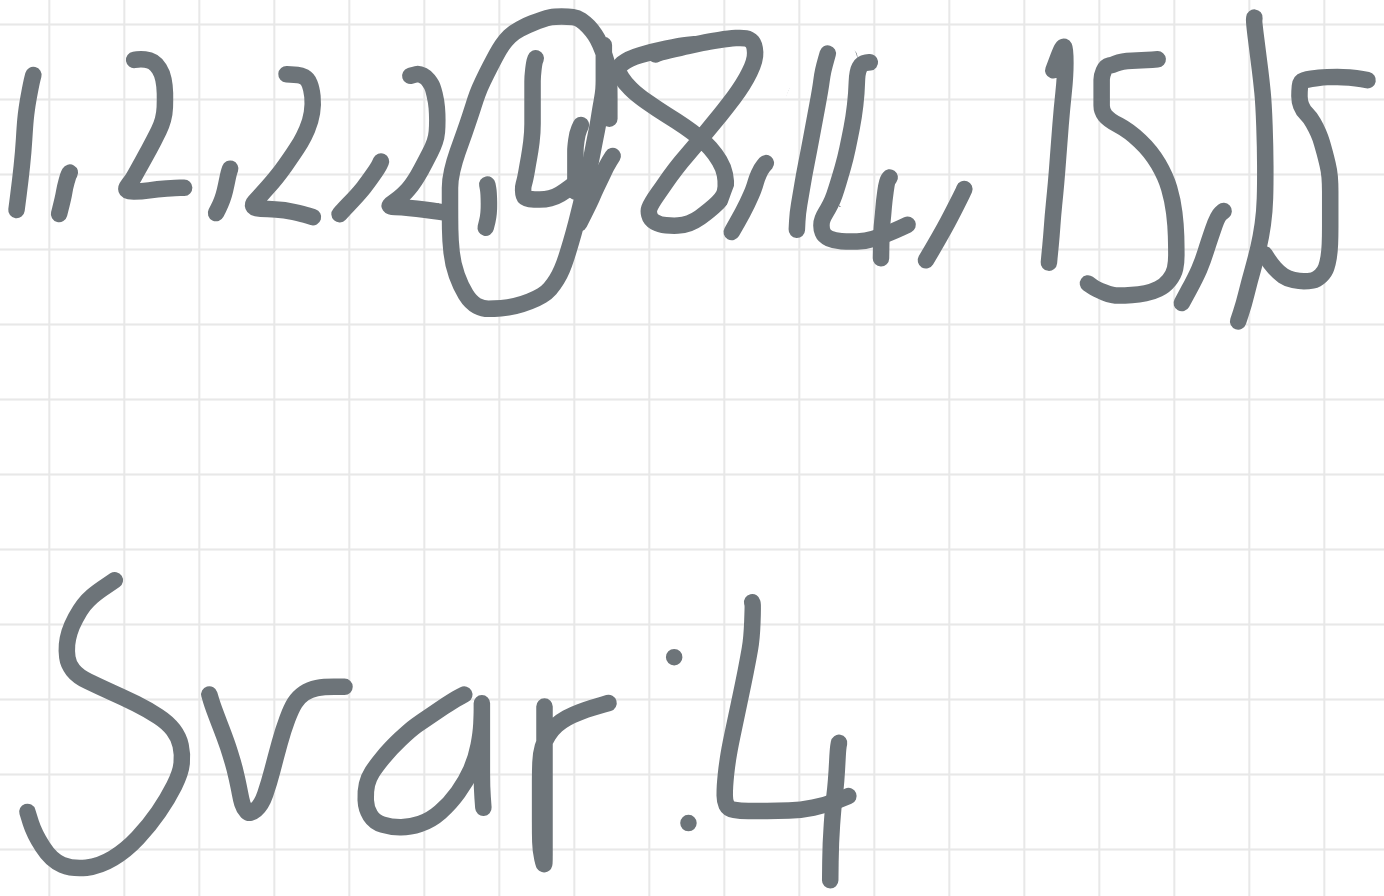 1,2,2,2,4,8,14,15,15
Svar:4